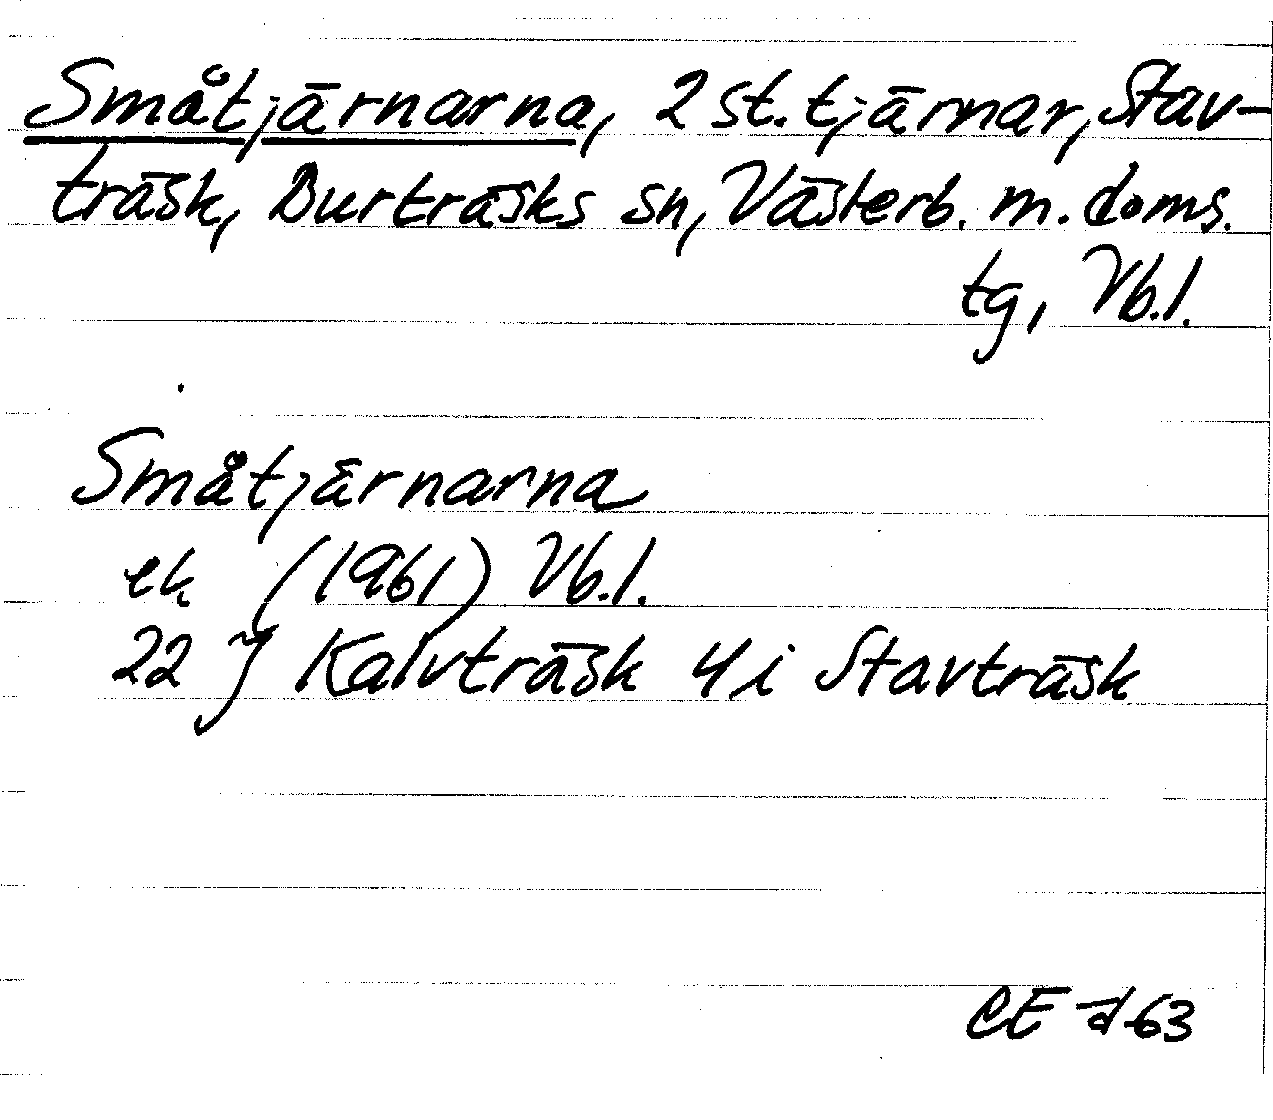 Småtjärnarna, 2 st. tjärnar, Stav-
träsk, Burträsks sn, Västerb. m. doms.
tg, Vb.l.
Småtjärnarna
ek (1961) Vb.l.
22 J Kalvträsk 4 i Stavträsk
CE 63